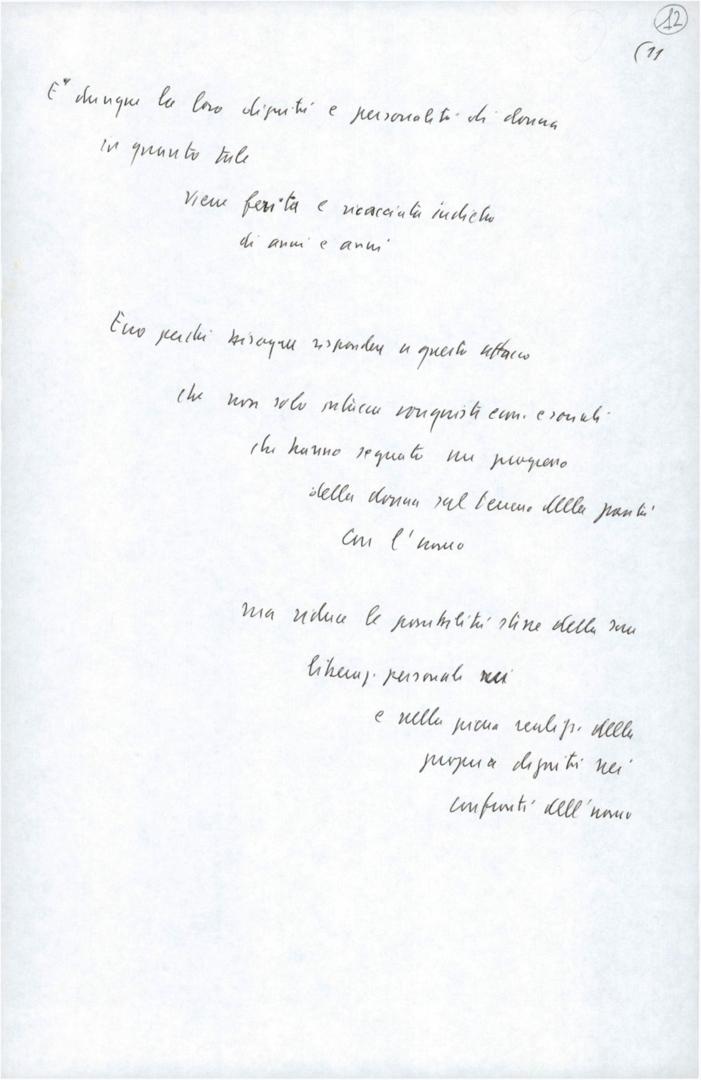 12
(11
E' dunque la loro dignità e personalità di donna
in quanto tale
viene ferita e ricacciata indietro
di anni e anni
Ecco perché bisogna rispondere a questo attacco
che non solo intacca conquiste econ. e sociali
che hanno segnato un progresso
della donna sul terreno della parità
con l'uomo
ma riduce le possibilità stesse della sua
liberaz. personale nei
e nella piena realizz. della
propria dignità nei
confronti dell'uomo